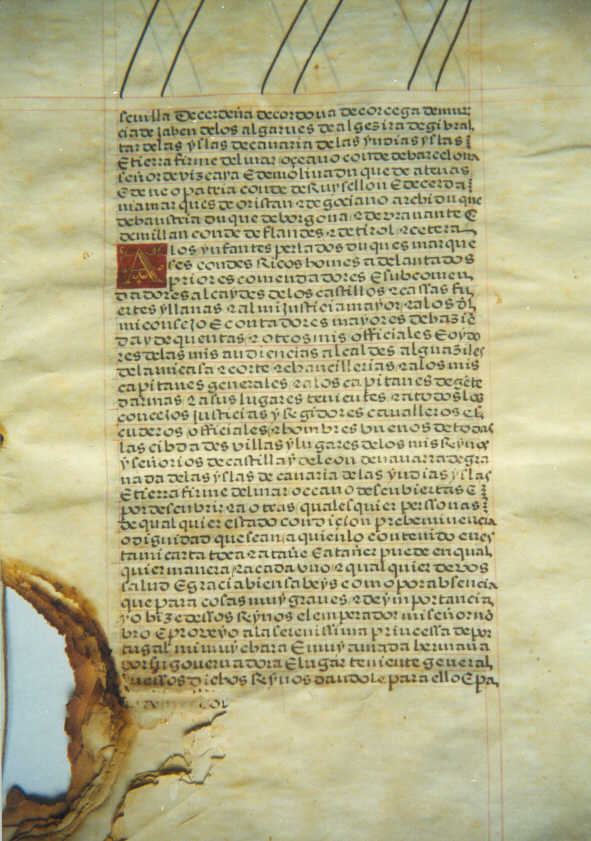 sevilla De cerdeña de cordova de corcega de mur
cia de jahen de los algarues de algezira de gibral
tar de las yslas de canaria de las yndias yslas
E tierra firme del mar oçeano conde de barcelona
señor de vizcaya E de molina duque de atenas
E de neopatria conde de Ruysellon E de cerda
nia marques de oristan E de goçiano archiduque
de baustria duque de borgoña E de bravante E
de millan conde de flandes E de tirol Etcetera
A los ynfantes perlados duques marque
ses condes Ricos homes adelantados
priores comendadores E subcomen
dadores alcaydes de los castillos E cassas fu
ertes y llanas E al mi justicia mayor E a los del
mi consejo E contadores mayores de hazie
da y de quentas E otros mis officiales E oydo
res de las mis audiencias alcaldes alguaziles
de la mi casa E corte E chancillerias E a los mis
capitanes generales E a los capitanes de gete
darmas E a sus lugares tenientes E a todos los
concejos justicias y Regidores cavalleros es
cuderos officiales E hombres buenos de todas
las cibdades villas y lugares de los mis Reynos
y señorios de castilla y de leon de navarra de gra
nada de las yslas de canaria de las yndias yslas
E tierra firme del mar oceano descubiertas E
por descubrir E a otras quales quier perssonas
de qual quier estado condicion preheminencia
o dignidad que sean a quien lo contenido en es
ta mi carta toca E atañe E atañer puede en qual
quier manera E a cada uno E qual quier de vos
salud E gracia bien sabeys como por absencia
que para cosas muy graves E de ymportancia
yo hize dessos Reynos el emperador mi señor no
bro E proveyo a la serenissima princessa de por
tugal mi muy chara E muy amada hermana
por su governadora E lugar teniente general
dessos dichos Reynos dandole para ello E pa